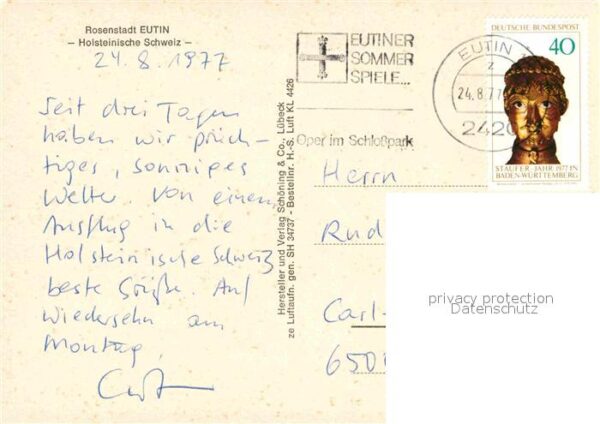 Rosenstadt EUTIN
– Holsteinische Schweiz –
24.8.1977
Seit drei Tagen
haben wir präch-
tiges, sonniges
Wetter. Von einem
Ausflug in die
Holsteinische Schweiz
beste Grüße. Auf
Wiedersehn am
Montag,
Hersteller und Verlag Schöning & Co., Lübeck
ze Luftaufn. gen. SH 34737 - Bestellnr. H.-S. Luft KL 4426
EUTINER
SOMMER
SPIELE...
Oper im Schloßpark
EUTIN
z
24.8.77
2420
DEUTSCHE BUNDESPOST
40
STAUFER-JAHR 1977 IN
BADEN-WÜRTTEMBERG
Herrn
Rud
Carl-
650
privacy protection
Datenschutz